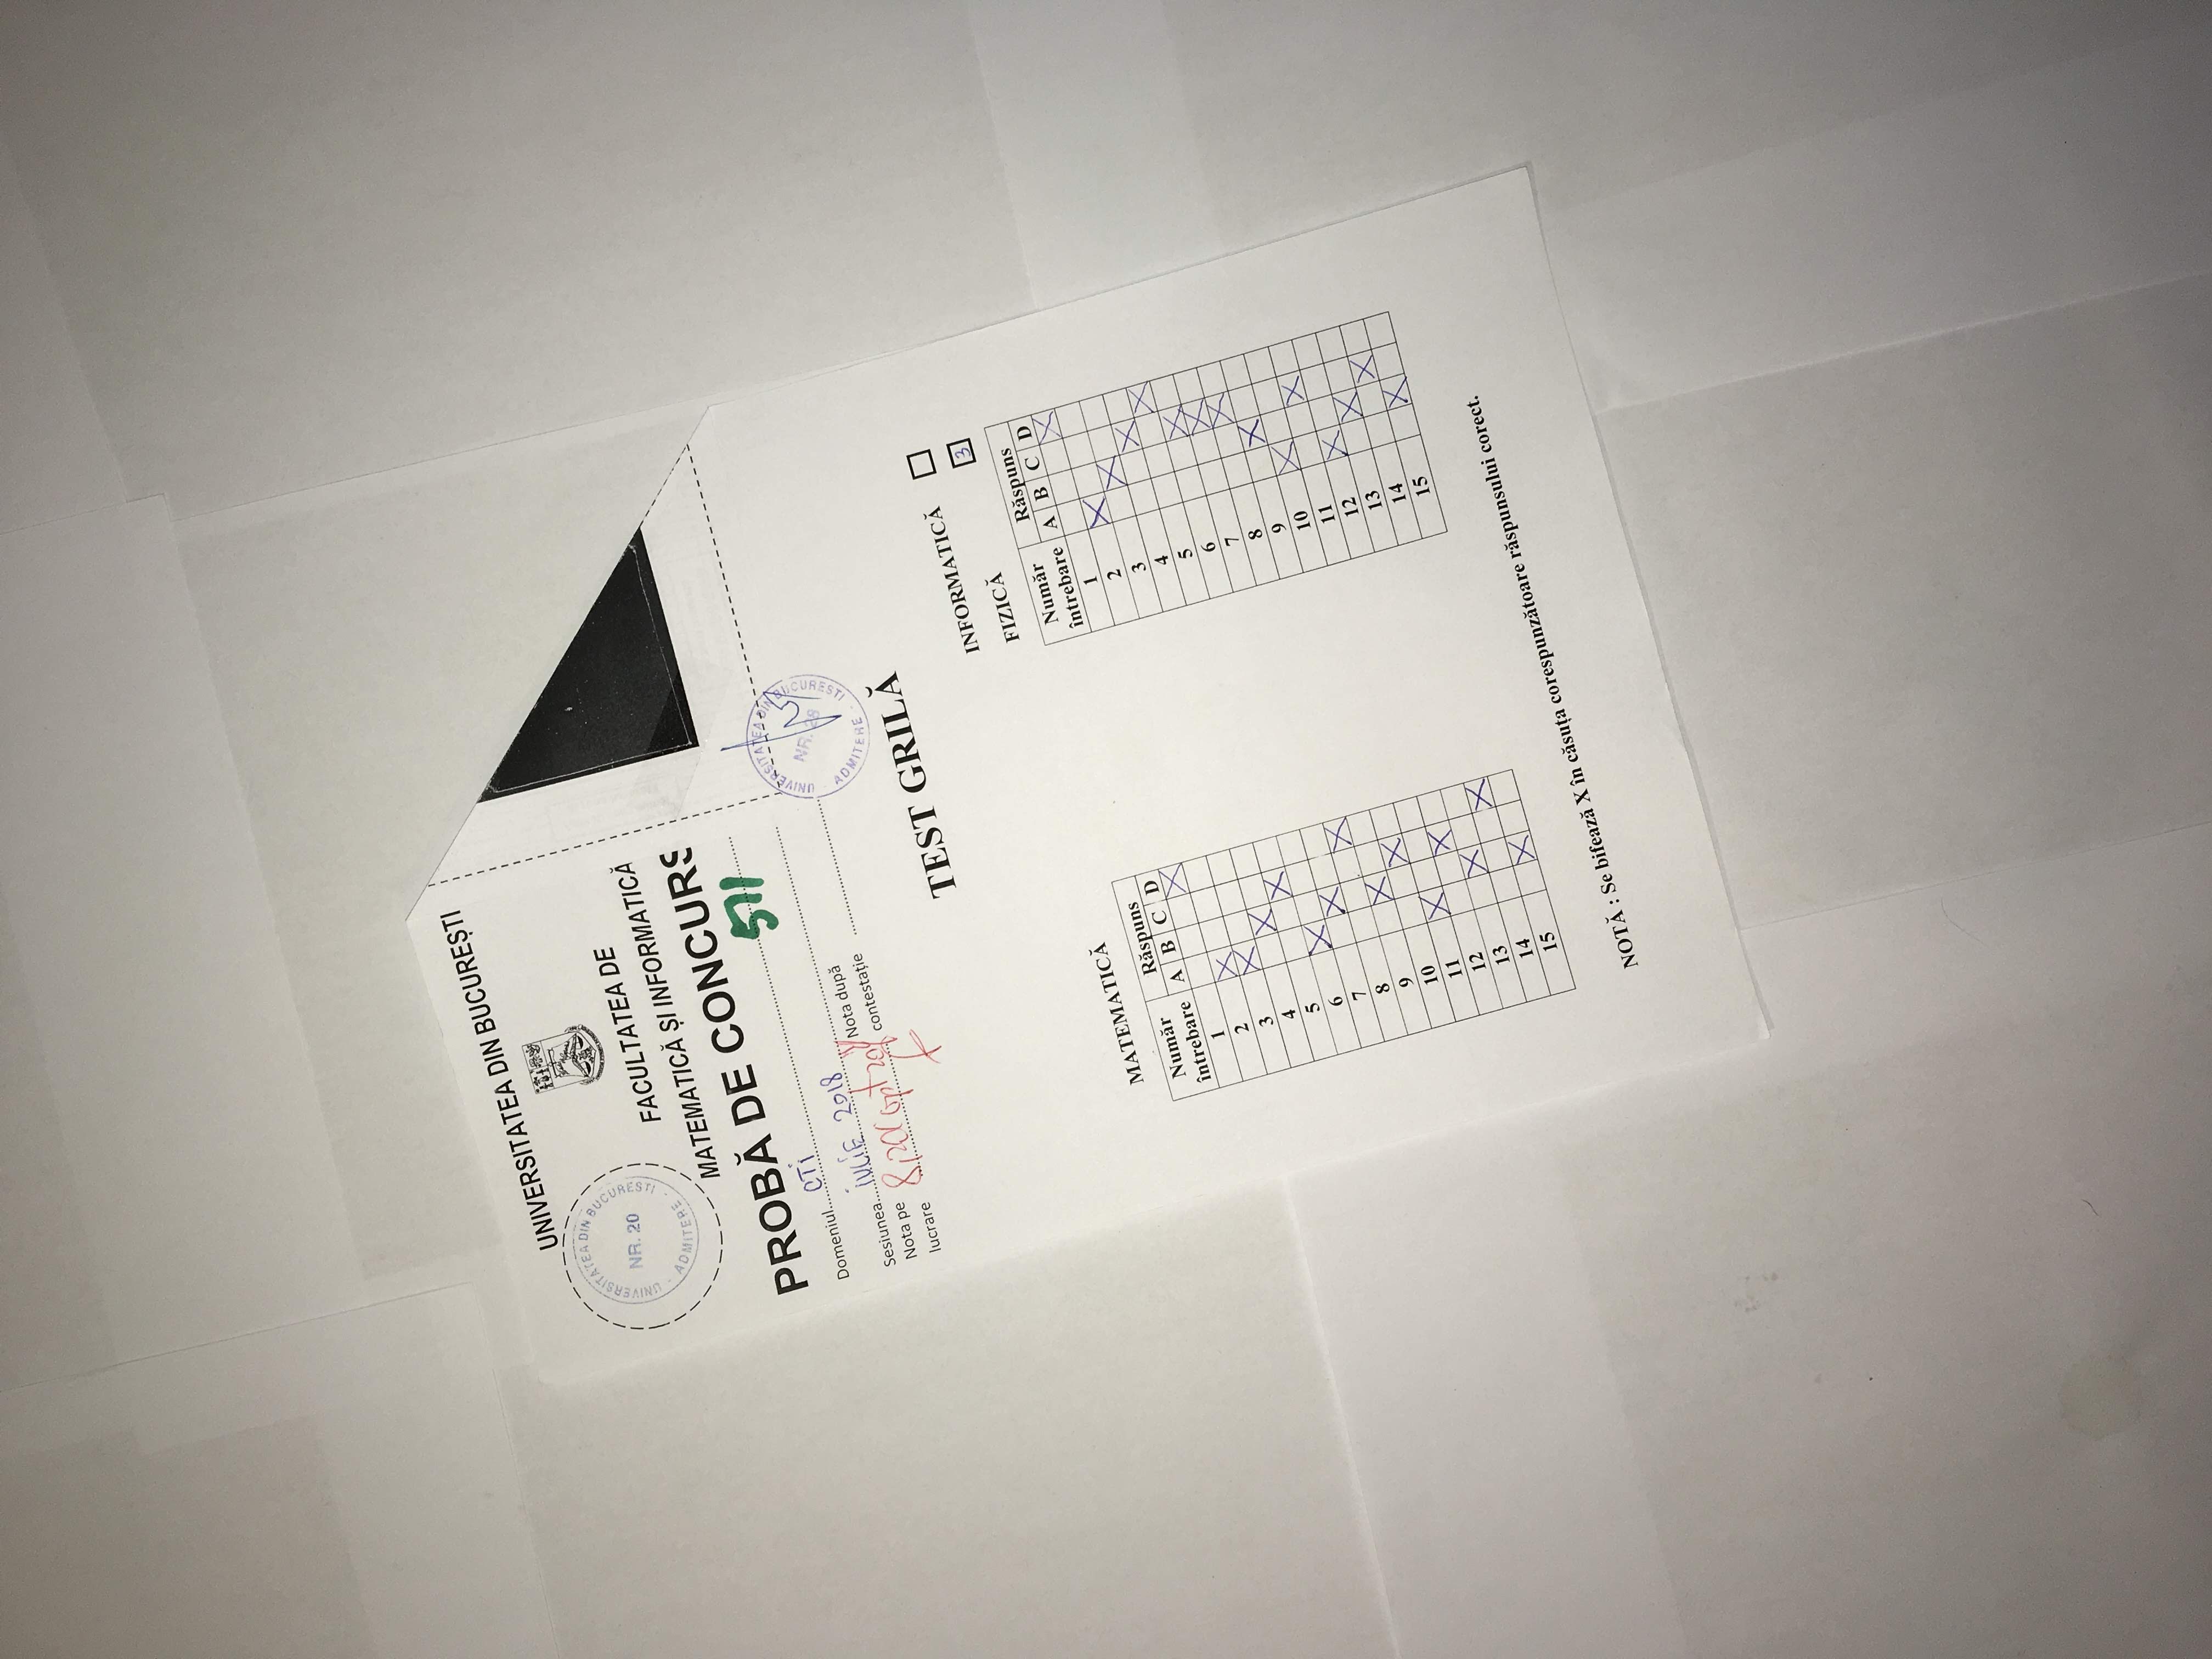 UNIVERSITATEA DIN BUCUREȘTI
UNIVERSITATEA DIN BUCUREȘTI
NR. 20
ADMITERE
FACULTATEA DE
MATEMATICĂ ȘI INFORMATICĂ
PROBĂ DE CONCURS
571
Domeniul CTI
Sesiunea IULIE 2018
Nota pe
lucrare 8,20
Nota după
contestație
UNIVERSITATEA DIN BUCUREȘTI
NR. 28
ADMITERE
TEST GRILĂ
MATEMATICĂ
Număr întrebare Răspuns
A B C D
1 X
2 X
3 X
4 X
5 X
6 X
7 X
8 X
9 X
10 X
11 X
12 X
13 X
14 X
15 X
INFORMATICĂ
FIZICĂ 3
Număr întrebare Răspuns
A B C D
1 X
2 X
3 X
4 X
5 X
6 X
7 X
8 X
9 X
10 X
11 X
12 X
13 X
14 X
15 X
NOTĂ : Se bifează X în căsuța corespunzătoare răspunsului corect.